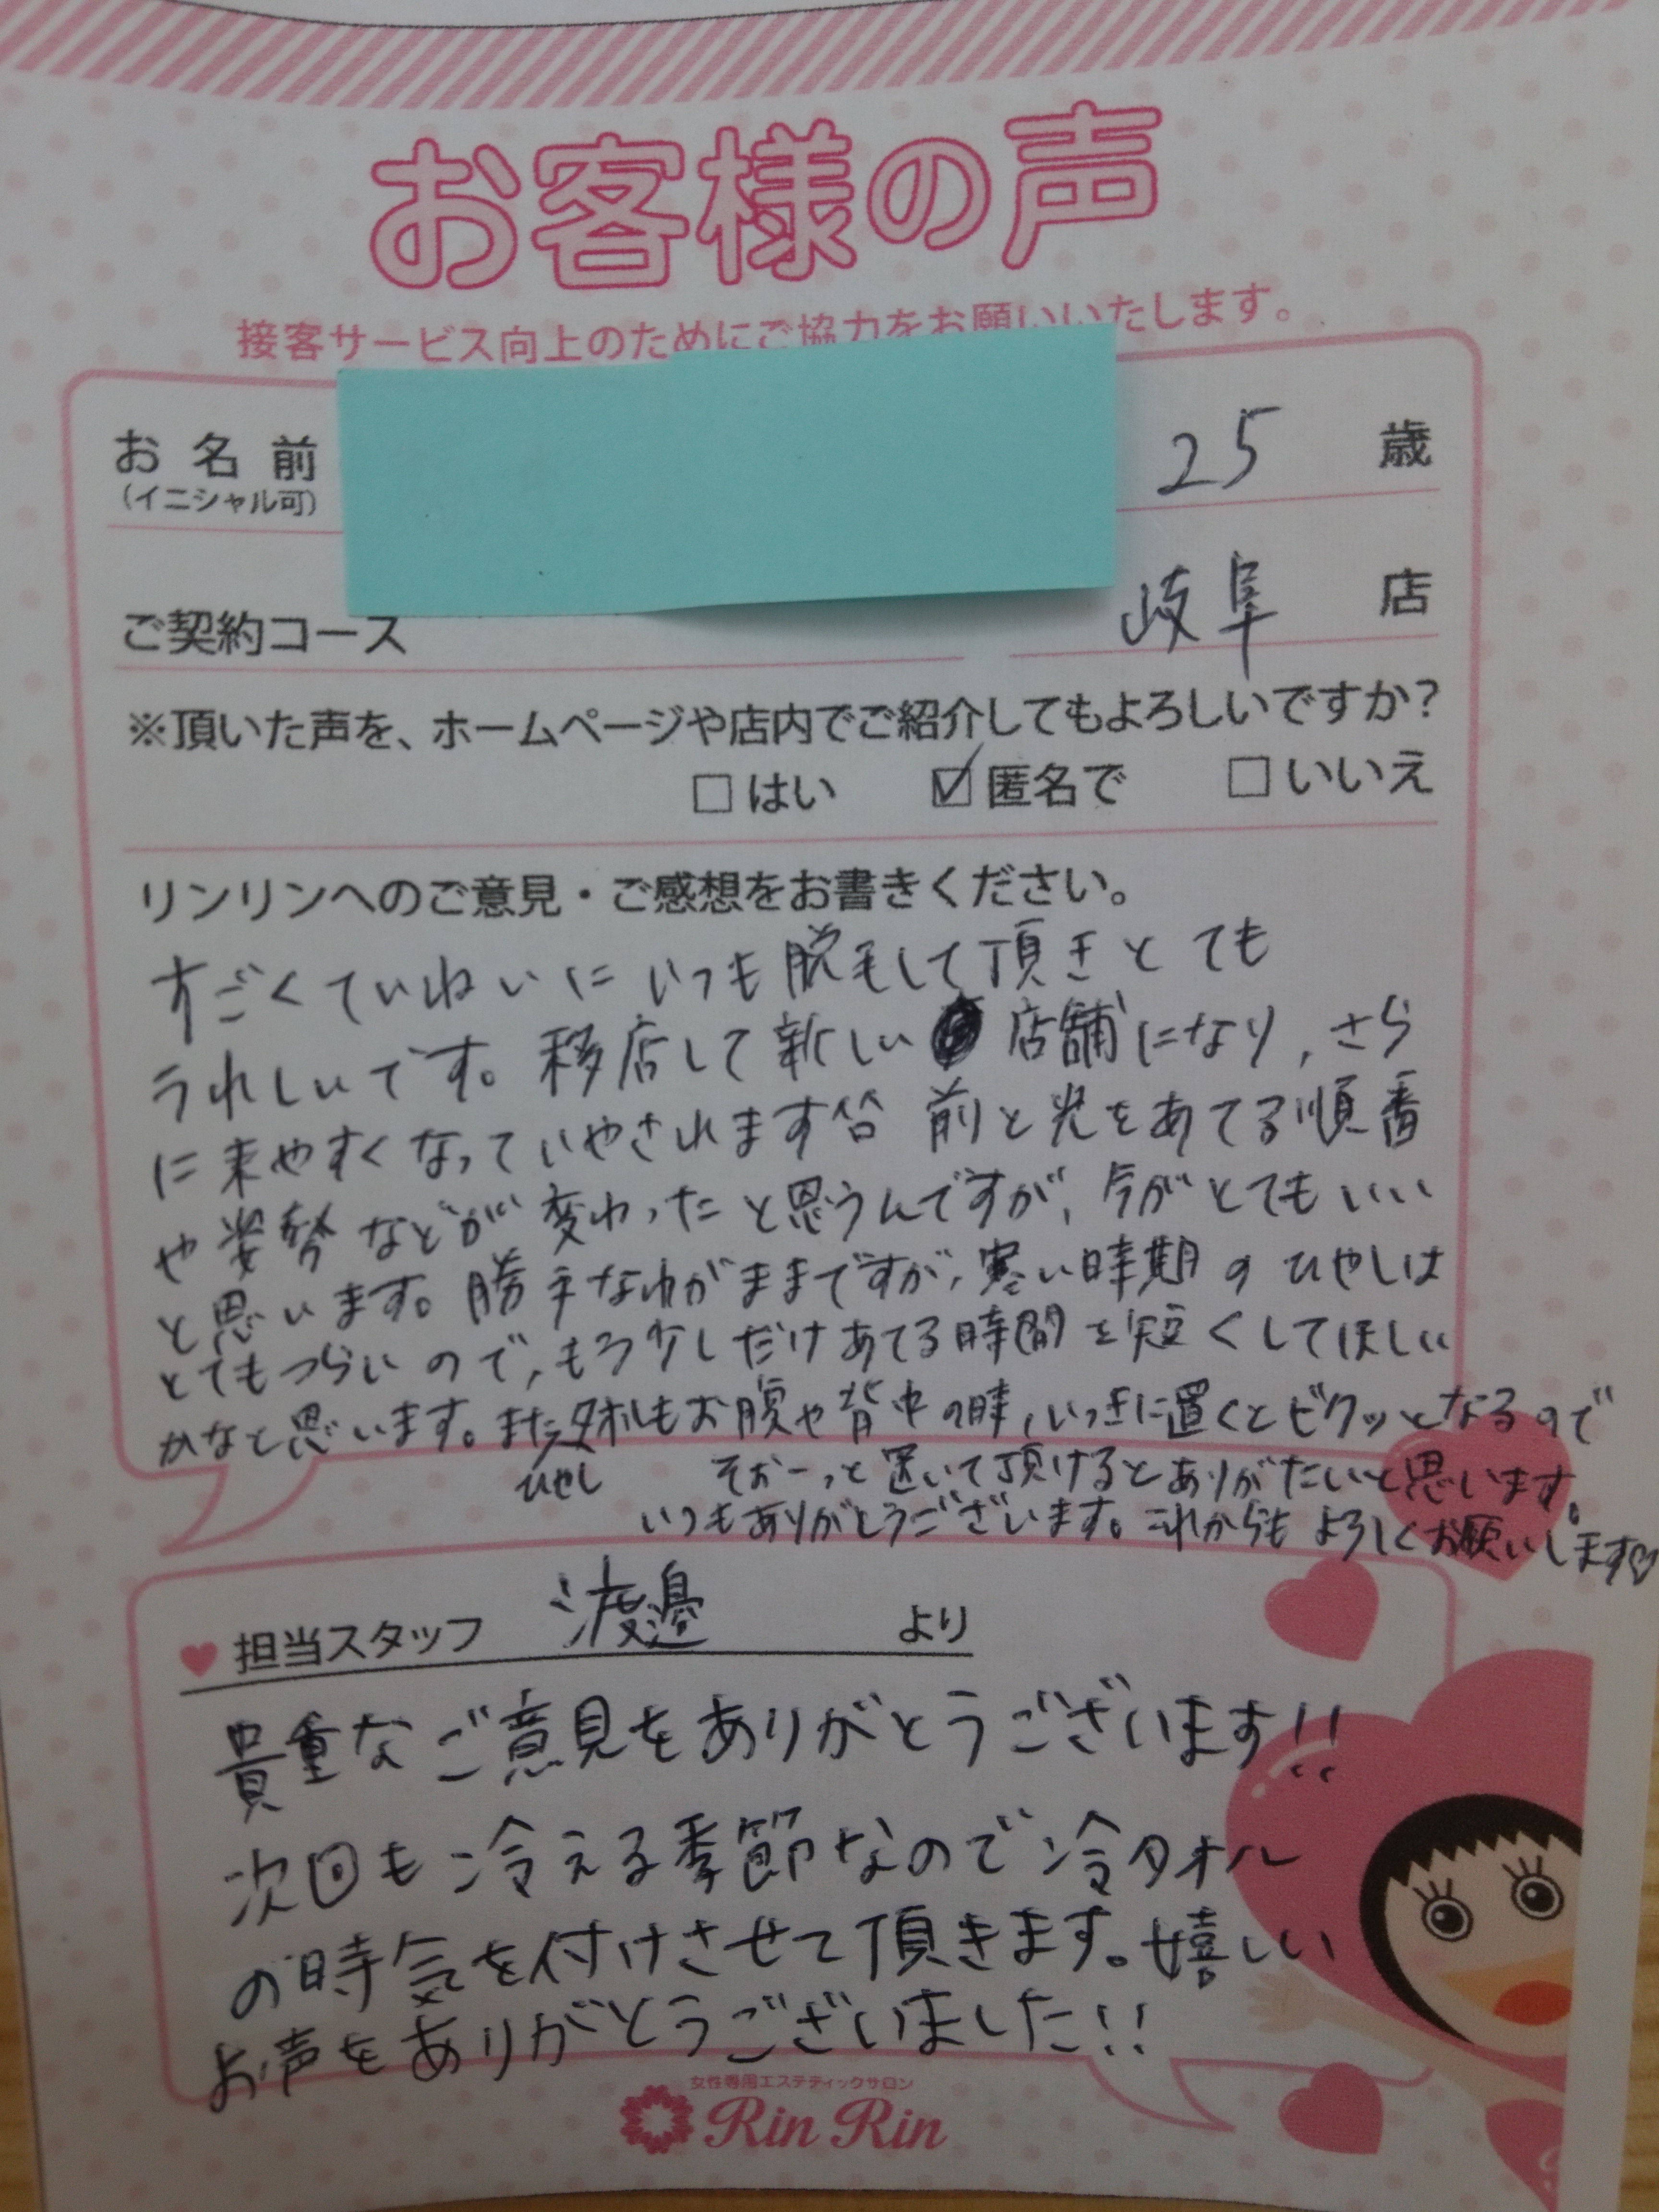 お客様の声
接客サービス向上のためにご協力をお願いいたします。
お名前
(イニシャル可)
25 歳
ご契約コース
岐阜 店
※頂いた声を、ホームページや店内でご紹介してもよろしいですか?
□はい ☑匿名で □いいえ
リンリンへのご意見・ご感想をお書きください。
すごくていねいにいつも脱毛して頂きとても
うれしいです。移店して新しい 店舗になり、さら
に来やすくなっていやされます^^ 前と光をあてる順番
や姿勢などが変わったと思うんですが、今がとてもいい
と思います。勝手なわがままですが、寒い時期のひやしは
とてもつらいので、もう少しだけあてる時間を短くしてほしい
かなと思います。またタオルもお腹や背中の時、いっきに置くとビクッとなるので
ひやし
そおーっと置いて頂けるとありがたいと思います。
いつもありがとうございます。これからもよろしくお願いします♡
♥担当スタッフ 渡邊 より
貴重なご意見をありがとうございます!!
次回も冷える季節なので冷タオル
の時気を付けさせて頂きます。嬉しい
お声をありがとうございました!!
女性専用エステティックサロン
Rin Rin